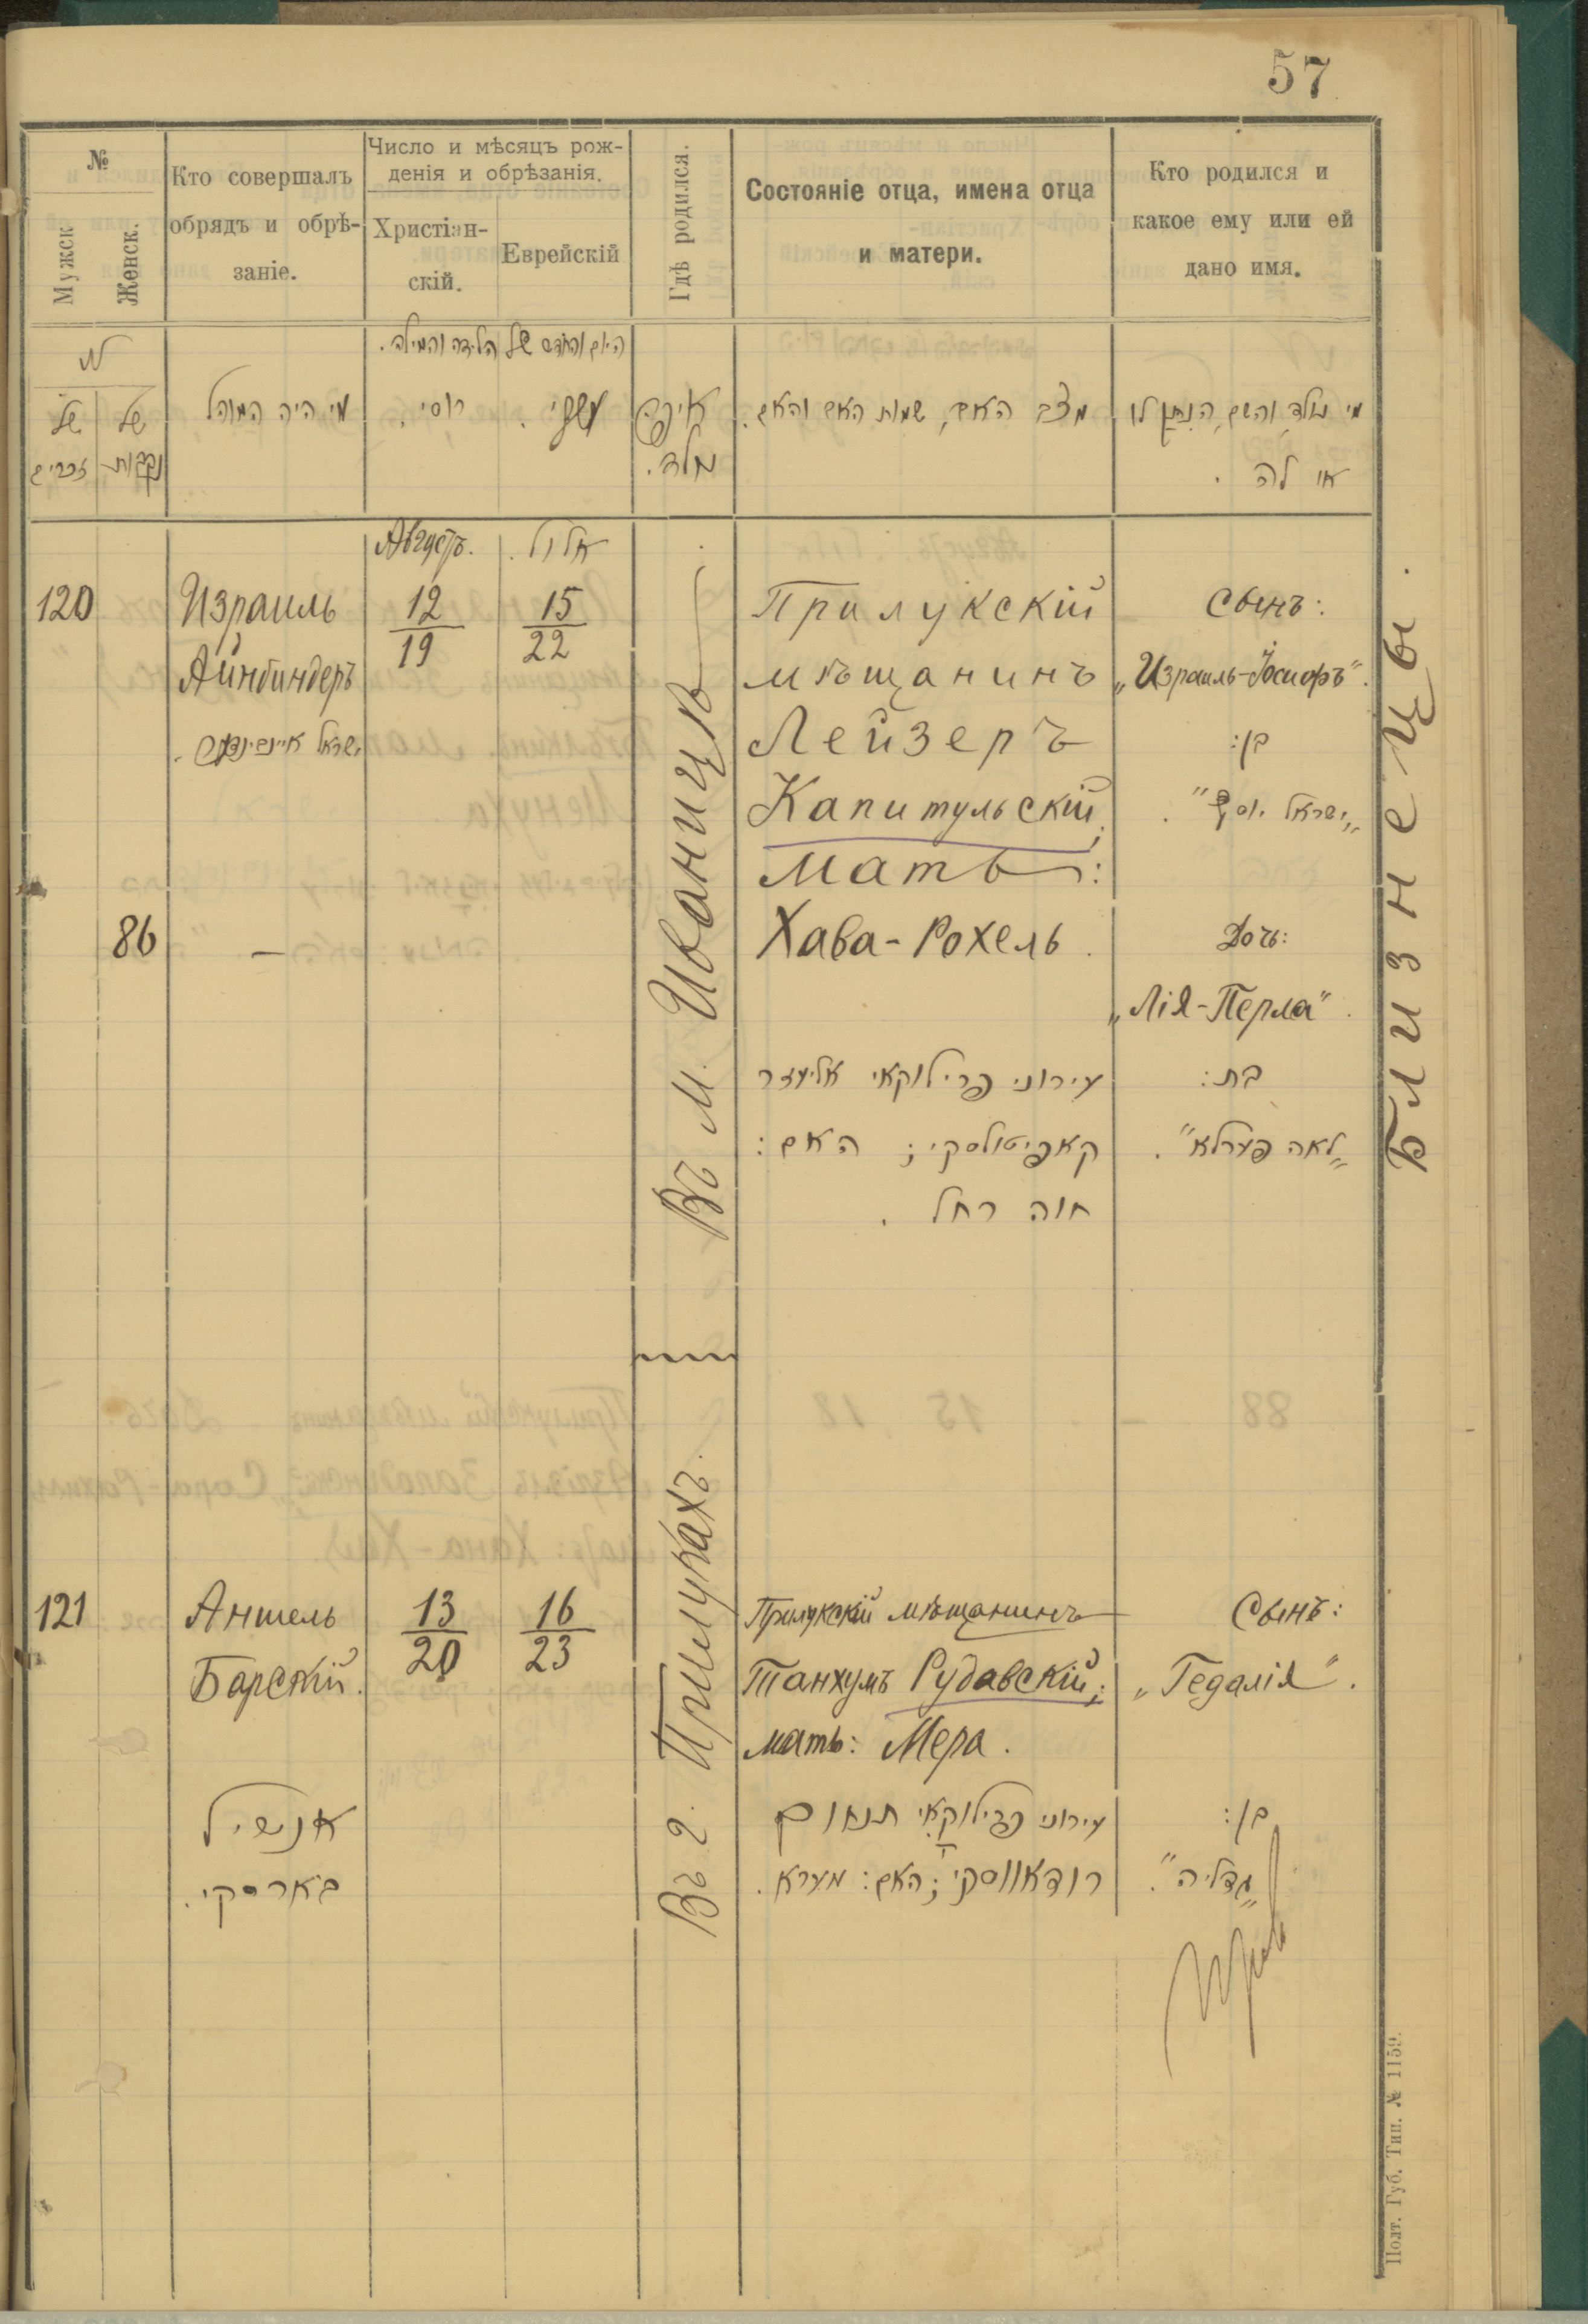 57
№
Мужск
Женск.
Кто совершалъ
обрядъ и обрѣ-
заніе.
Число и мѣсяцъ рож-
денія и обрѣзанія.
Христіан-
скій.
Еврейскій
Гдѣ родился.
Состояніе отца, имена отца
и матери.
Кто родился и
какое ему или ей
дано имя.
של
זכרים
של
נקבות
מי היה המוהל
היום והחדש של הלידה והמילה.
רוסי.
איפה
נולד.
מצב האב, שמות האב והאם.
מי נולד והשם הנתן לו
או לה.
Августъ.
אלול.
120
Израиль
Айнбиндеръ
12
19
15
22
Въ м. Иваница
Прилукскій
мѣщанинъ
Лейзеръ
Капитульскій;
Мать:
Хава-Рохель.
Сынъ:
„Израиль-Іосифъ“.
בן:
„ישראל יוסף“.
86
—
Дочь:
„Лія-Перла“.
עירוני פרילוקאי אליעזר
קאפיטולסקי; האם:
חוה רחל.
בת:
„לאה פערלא“.
Близнецы.
121
Аншель
Барскій.
אנשיל
בארסקי.
13
20
16
23
Въ г. Прилукахъ.
Прилукскій мѣщанинъ
Танхумъ Рудавскій;
мать: Мера.
עירוני פרילוקאי תנחום
רודאווסקי; האם: מערא.
Сынъ:
„Гедалія“.
בן:
„גדליה“.
Полт. Губ. Тип. № 1159.